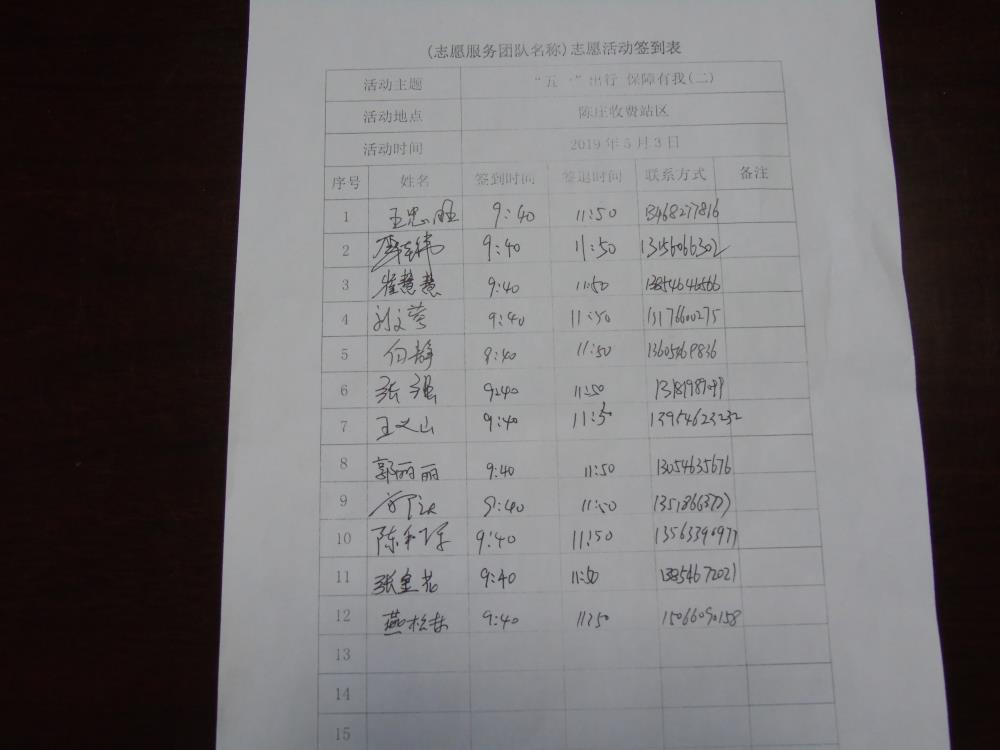 (志愿服务团队名称)志愿活动签到表
活动主题 “五一”出行 保障有我(二)
活动地点 陈庄收费站区
活动时间 2019年5月3日
序号 姓名 签到时间 签退时间 联系方式 备注
1 王思旺 9:40 11:50 13468277816
2 9:40 11:50 13156066302
3 崔慧慧 9:40 11:50 13854646566
4 刘文莹 9:40 11:50
5 向静 9:40 11:50 13605469836
6 张强 9:40 11:50
7 王义山 9:40 11:50 13954623232
8 郭丽丽 9:40 11:50 13054635676
9 9:40 11:50
10 9:40 11:50
11 张金花 9:40 11:50 13854672021
12 燕松林 9:40 11:50 15066090158
13
14
15